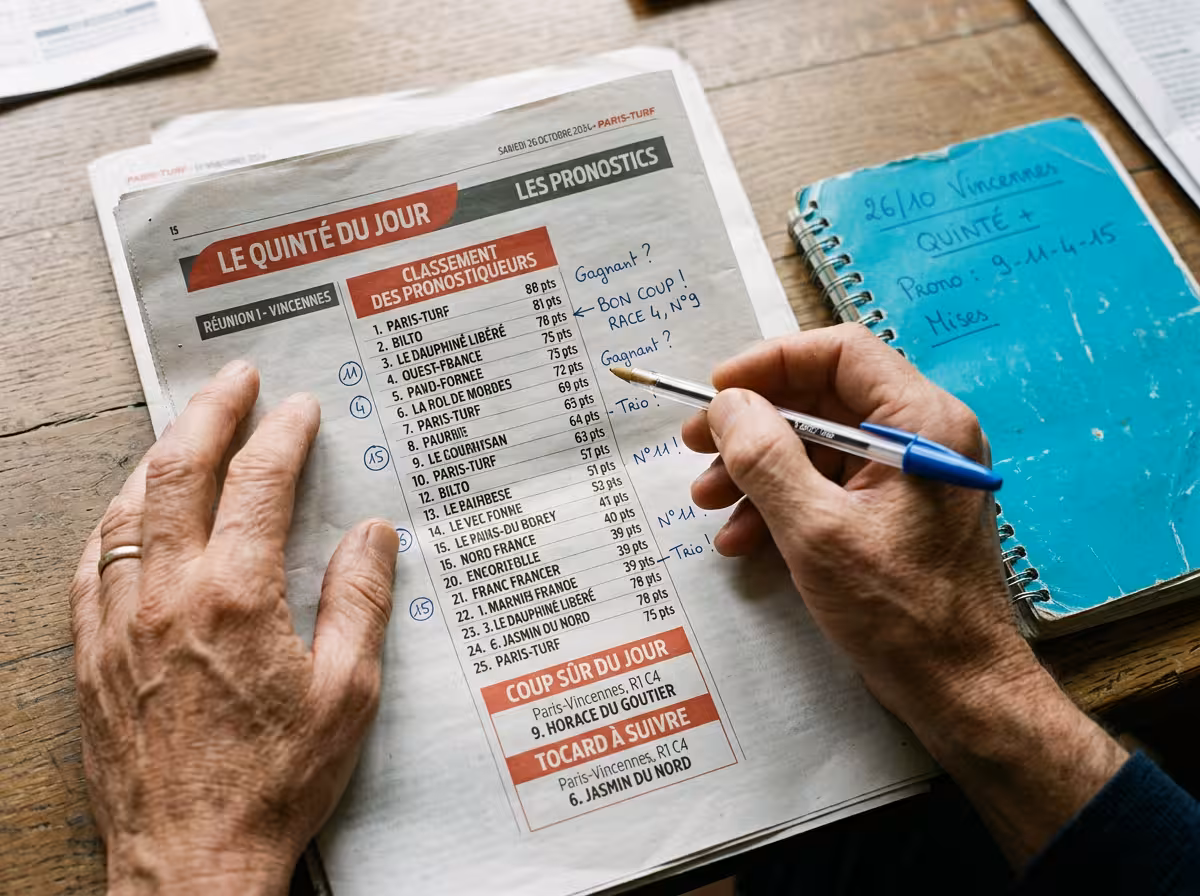 SAMEDI 26 OCTOBRE 2024 - PARIS-TURF
15
LE QUINTÉ DU JOUR
LES PRONOSTICS
RÉUNION I - VINCENNES
CLASSEMENT
DES PRONOSTIQUEURS
88 pts
1. PARIS-TURF 81 pts
2. BILTO 78 pts
3. LE DAUPHINÉ LIBÉRÉ 75 pts
4. OUEST-FRANCE 75 pts
5. PAND-FORNEE 72 pts
6. LA ROL DE MORDES 69 pts
7. PARIS-TURF 63 pts
8. PAURRIE 64 pts
9. LE COURRISAN 63 pts
10. PARIS-TURF 57 pts
12. BILTO 51 pts
13. LE BAIRBESE 53 pts
14. LE VEC FONNE 41 pts
15. LE PAIRS-DU BOREY 40 pts
16. NORD FRANCE 39 pts
20. ENCORIFBLLE 39 pts
21. FRANC FRANCER 39 pts
22. 1. MARNIB FRANDE 78 pts
23. 3. LE DAUPHINÉ LIBÉRÉ 78 pts
24. 6. JASMIN DU NORD 75 pts
25. PARIS-TURF
COUP SÛR DU JOUR
Paris-Vincennes, R1 C4
9. HORACE DU GOUTIER
TOCARD À SUIVRE
Paris-Vincennes, R1 C4
6. JASMIN DU NORD
11
4
15
15
Gagnant ?
← BON COUP !
RACE 4, N°9
Gagnant ?
- Trio !
N°11 !
N°11
- Trio !
26/10 Vincennes
QUINTÉ +
Prono : 9-11-4-15
Mises